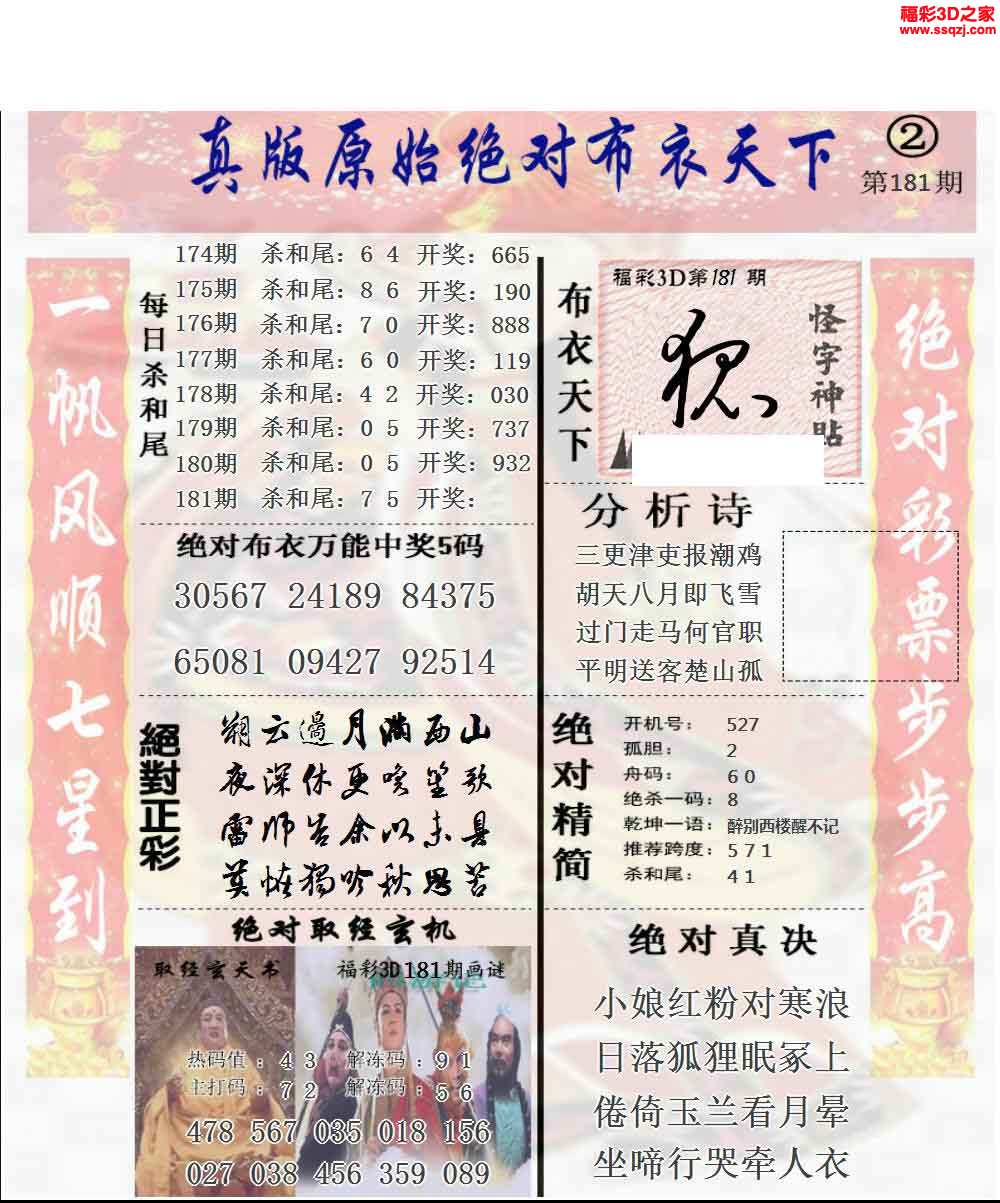 福彩3D之家
www.ssqzj.com
真版原始绝对布衣天下
②
第181期
一帆风顺七星到
每日杀和尾
174期 杀和尾：6 4 开奖：665
175期 杀和尾：8 6 开奖：190
176期 杀和尾：7 0 开奖：888
177期 杀和尾：6 0 开奖：119
178期 杀和尾：4 2 开奖：030
179期 杀和尾：0 5 开奖：737
180期 杀和尾：0 5 开奖：932
181期 杀和尾：7 5 开奖：
绝对布衣万能中奖5码
30567 24189 84375
65081 09427 92514
絕對正彩
朔云邊月满西山
夜深休更唤笙歌
雷师告余以未具
莫怪獨吟秋思苦
绝对取经玄机
取经玄天书
福彩3D181期画谜
热码值：4 3 解冻码：9 1
主打码：7 2 解冻码：5 6
478 567 035 018 156
027 038 456 359 089
布衣天下
福彩3D第181期
怪字神贴
分析诗
三更津吏报潮鸡
胡天八月即飞雪
过门走马何官职
平明送客楚山孤
绝对精简
开机号：527
孤胆：2
舟码：6 0
绝杀一码：8
乾坤一语：醉别西楼醒不记
推荐跨度：5 7 1
杀和尾：4 1
绝对真决
小娘红粉对寒浪
日落狐狸眠冢上
倦倚玉兰看月晕
坐啼行哭牵人衣
绝对彩票步步高